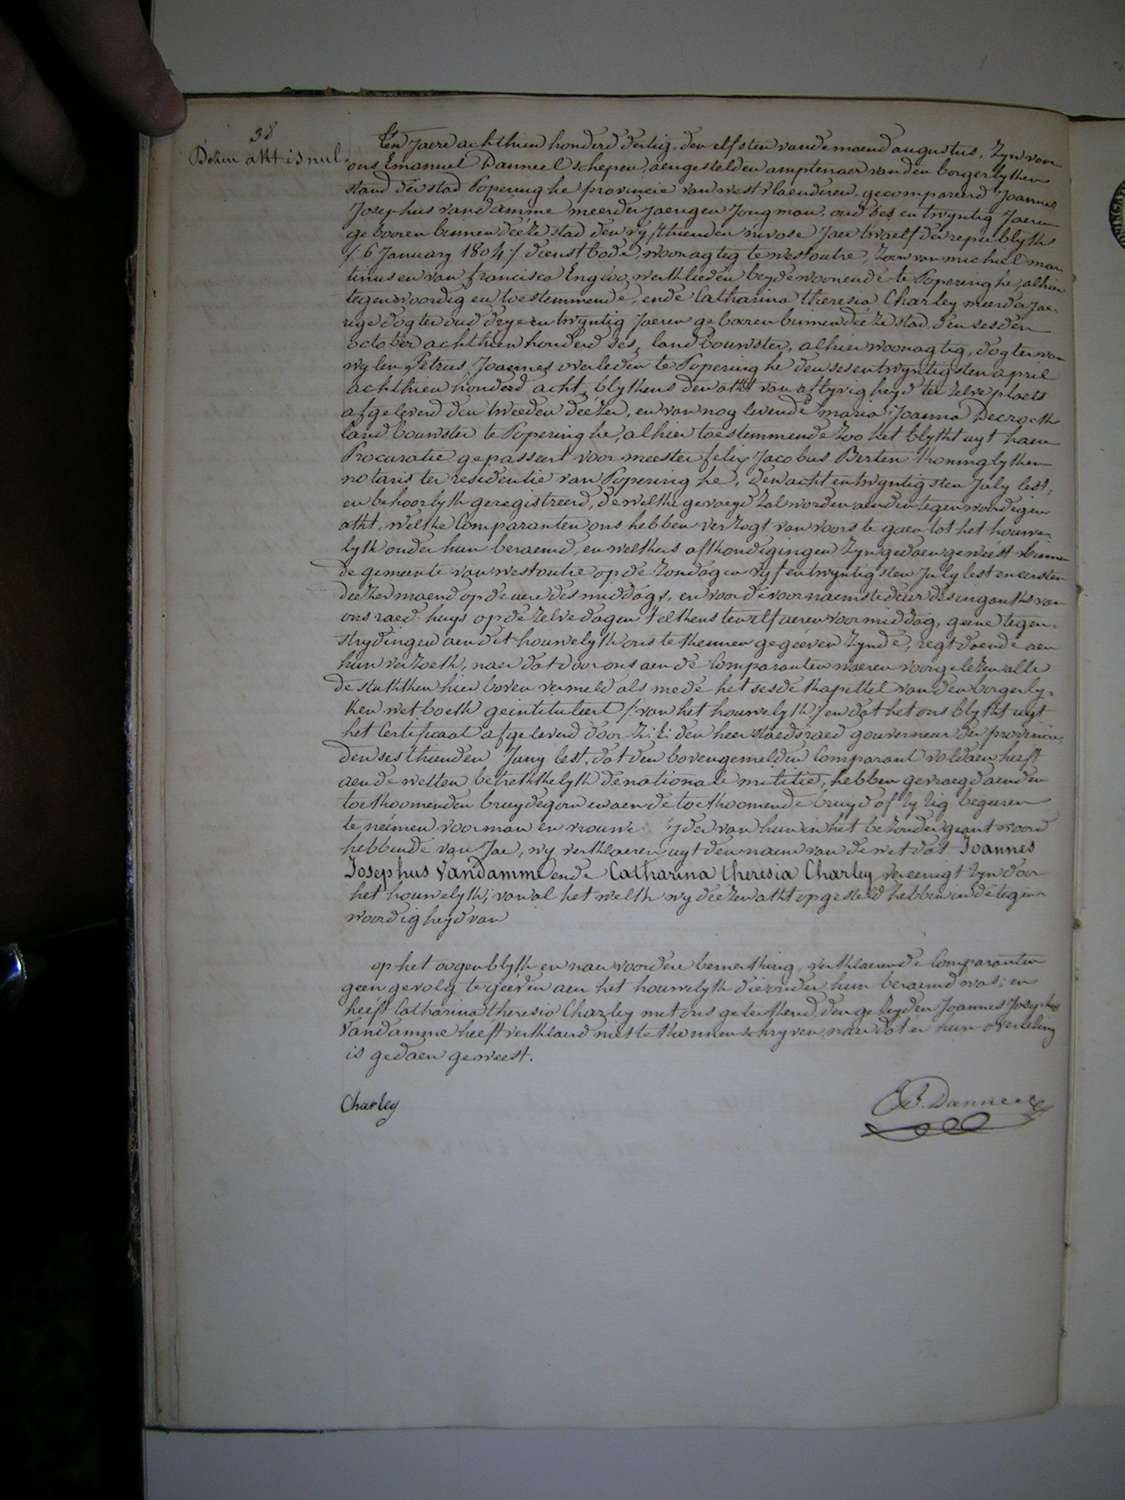 38
Dezen akt is nul.
Ten Jaere achthien honderd dertig, den elfsten van de maend augustus, Zyn voor
ons Emanuel Danneel schepen, aengestelden amptenaer van den borgerlyken
stand der stad Poperinghe provincie van westvlaenderen, gecompareerd Joannes
Josephus vandamme meerderjaerigen Jongman, oud ses en twyntig Jaeren
gebooren binnen deéze stad den vyfthienden nivose Jaer twaelf der republyk
/: 6 January 1804 :/ dienstbode, woonagtig te westoutre, Zoon van michiel mar-
tinus en van francisca Engloo, werklieden beyde woonende te Poperinghe, alhier
tegenwoordig en toestemmende, ende Catharina theresia Charley meerderjae-
rige dogter oud drye en twyntig Jaeren gebooren binnen deéze stad den sesden
october achthien honderd ses, landbouwster, alhier woonagtig, dogter van
wylen Petrus Joannes overleden te Poperinghe den sesentwyntigsten april
achthien honderd acht, blykens den akt van aflyvigheyd ter zelve plaets
afgeleverd den tweeden deézer, en van nog levende maria Joanna Decrock
landbouwster te Poperinghe, alhier toestemmende zoo het blykt uyt haere
Procuratie gepasseert voor meester felix Jacobus Berten koninglyken
notaris ter residentie van Poperinghe, den acht en twyntigsten July lest,
en behoorlyk geregistreerd, de welke gevoegd zal worden aen den tegenwoordigen
akt. welke Comparanten ons hebben verzogt van voorts te gaen tot het houwe-
lyk onder hun beraemd, en welkers afkondigingen Zyn gedaen geweést binnen
de gemeente van westoutre op de Zondagen vyf en twyntigsten July lest en eersten
deézer maend op de uere des middags, en voor de voornaemste deur des ingangs van
ons raed-huys op de zelve dagen telkens ten elf ueren voormiddag, geene tegen-
strydingen aen dit houwelyk ons te kennen gegeéven zynde, regt doende aen
hun verzoek, naer dat door ons aen de Comparanten waeren voorgelezen alle
de stukken hier boven vermeld als mede het sesde kapittel van den borgerly-
ken wetboek geintituleert /: van het houwelyk :/ en dat het ons blykt uyt
het Certificaet afgeleverd door Z: E: den heer staedsraed gouverneur der provincie,
den sesthienden Juny lest, dat den bovengemelden Comparant voldaen heeft
aen de wetten betrekkelyk de nationale militie, hebben gevraegd aen den
toekoomenden bruydegom en aen de toekoomende bruyd of zy zig begeeren
te neémen voor man en vrouwe: ieder van hun in het bezonder geantwoord
hebbende van Jae, wy verklaeren uyt den naem van de wet dat Joannes
Josephus Vandamme ende Catharina theresia Charley vereenigt zyn door
het houwelyk; van al het welk wy deézen akt opgesteld hebben in de tegen-
woordigheyd van
op het oogenblyk en naer voordere bemerking, verklaerende Comparanten
geen gevolg te geéven aen het houwelyk die onder hun beraemd was; en
heéft Catharina theresia Charley met ons geteékend, den gezeyden Joannes Josephus
Vandamme heéft verklaerd niet te konnen schryven, naer dat er hun overlezing
is gedaen geweest.
Charley
E B. Danneel